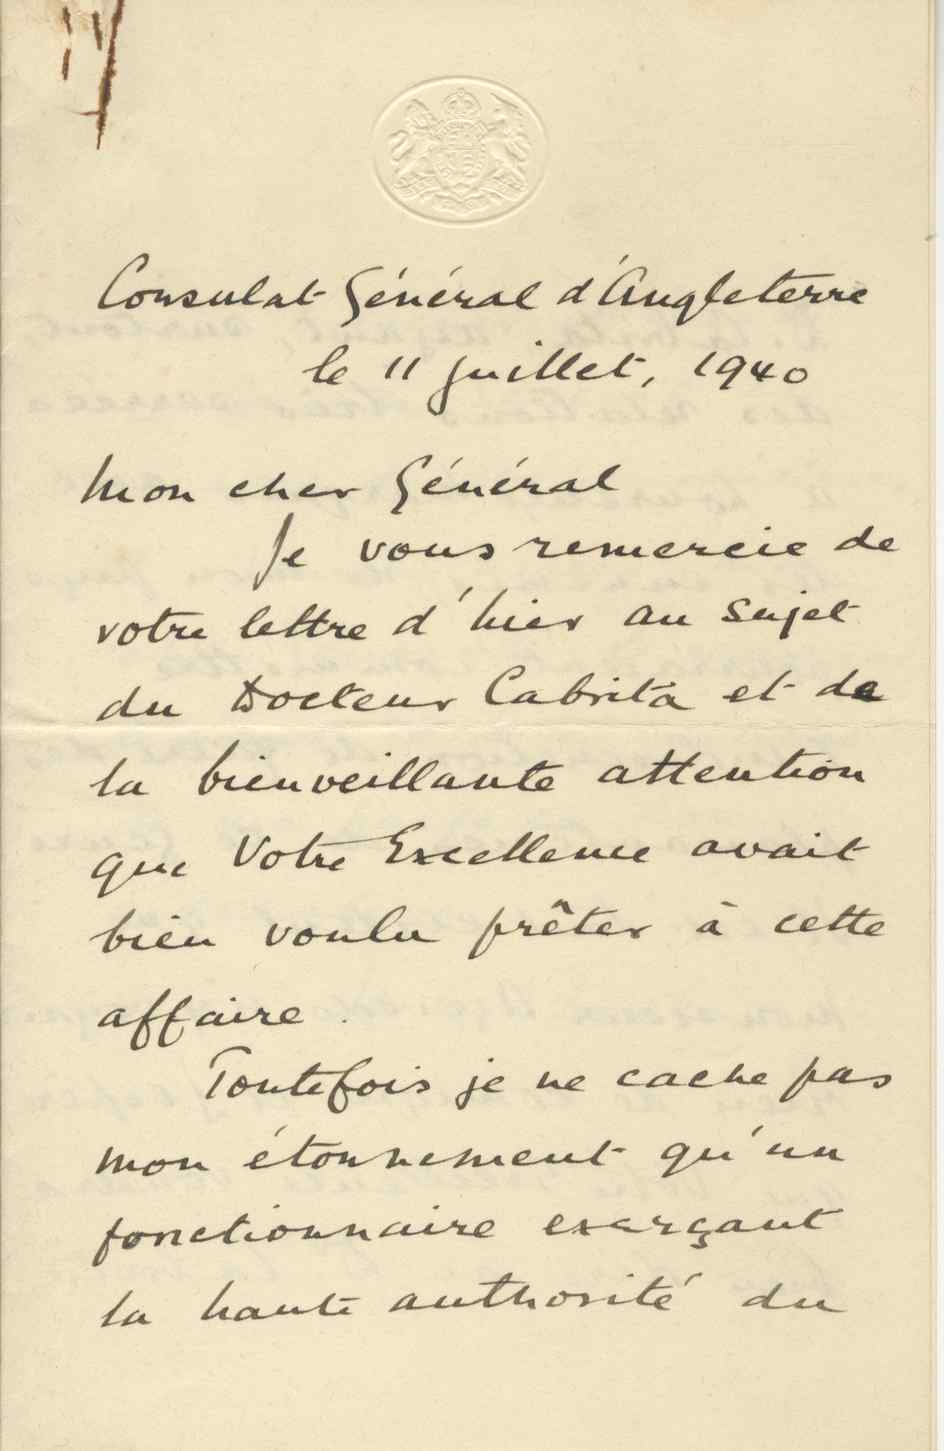 Consulat Général d'Angleterre
le 11 juillet, 1940
Mon cher Général
Je vous remercie de
votre lettre d'hier au sujet
du Docteur Cabrita et de
la bienveillante attention
que Votre Excellence avait
bien voulu prêter à cette
affaire.
Toutefois je ne cache pas
mon étonnement qu'un
fonctionnaire exerçant
la haute authorité du